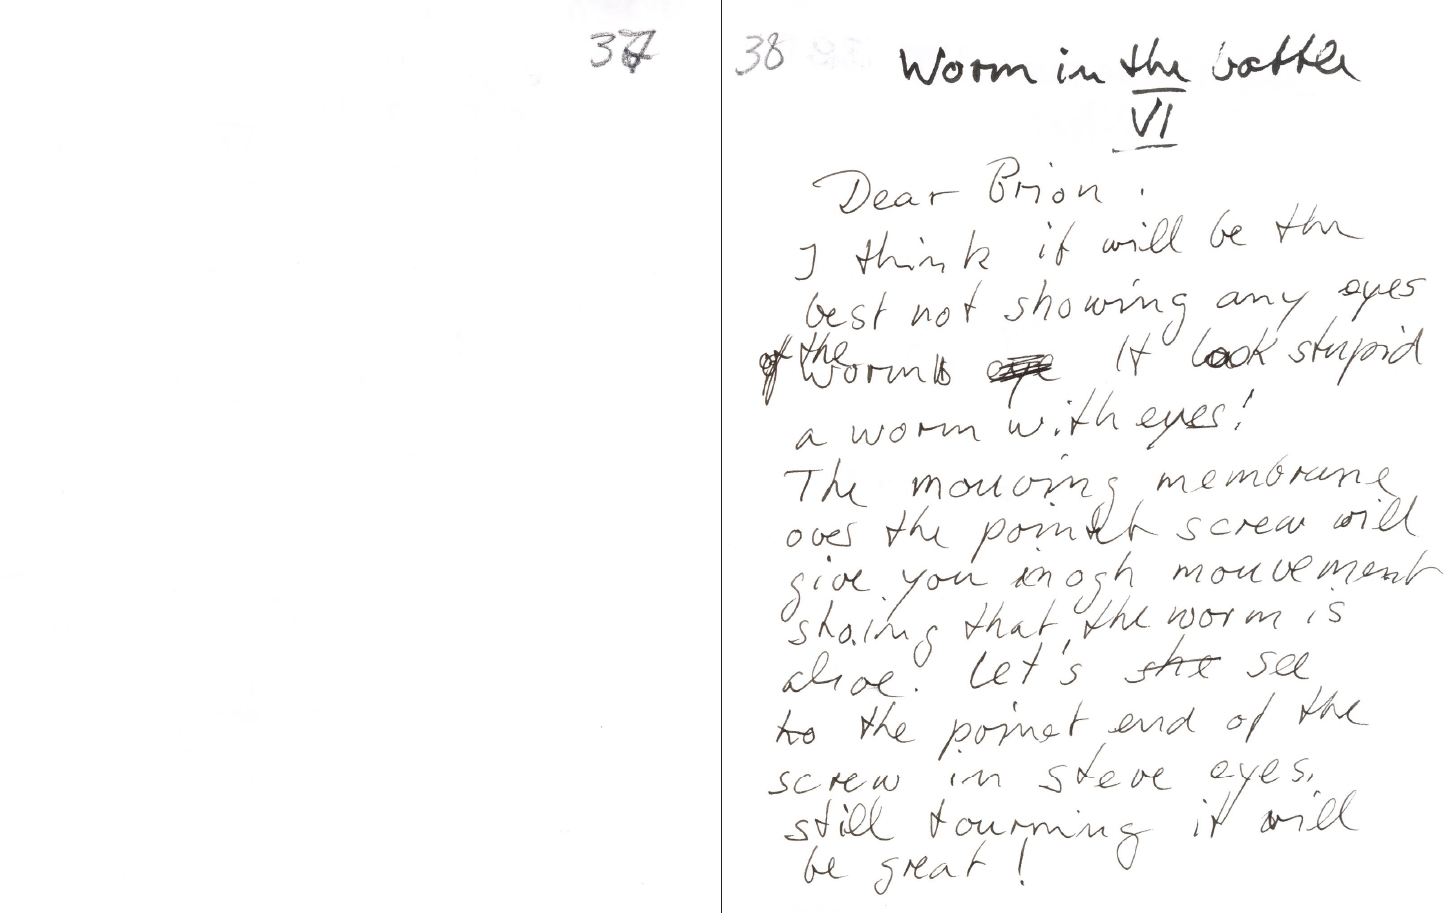 37
38
Worm in the bottle
VI
Dear Brion.
I think it will be the
best not showing any eyes
of the worm It look stupid
a worm with eyes!
The mouving membrane
over the poinet screw will
give you inogh mouvement
shoing that the worm is
alive. Let's she see
to the poinet end of the
screw in steve eyes,
still tourning it will
be great!